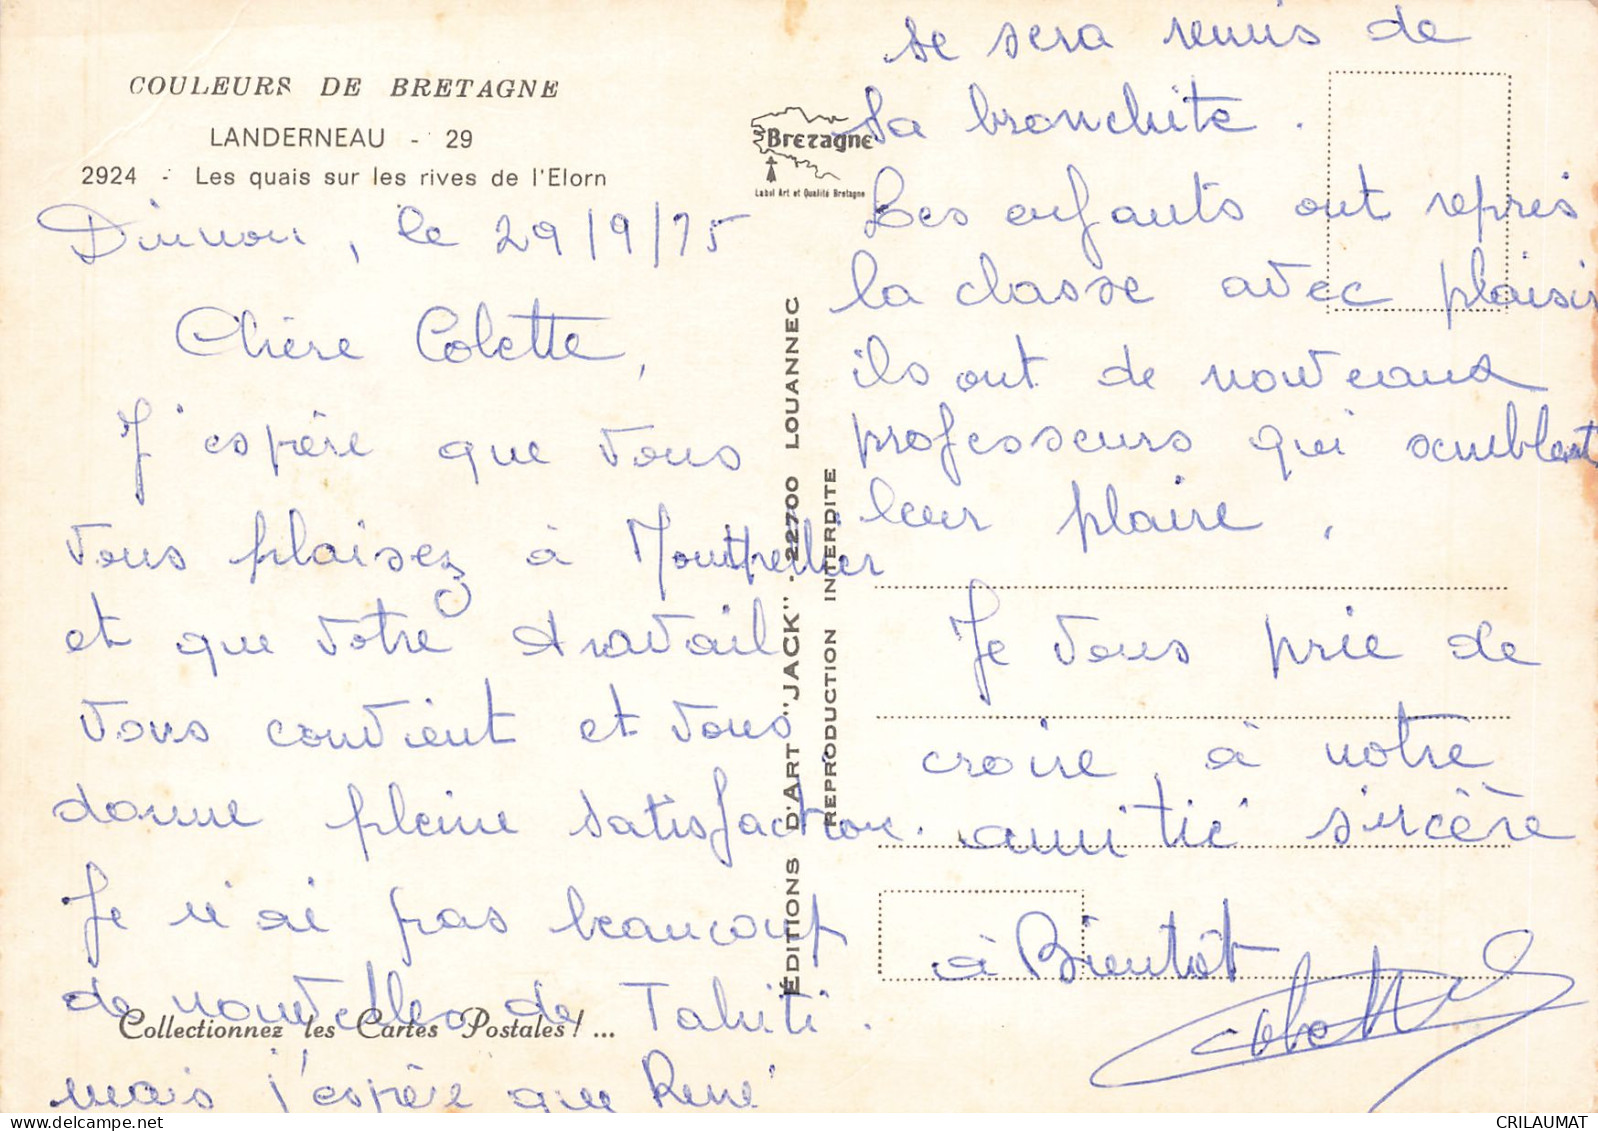 COULEURS DE BRETAGNE
LANDERNEAU - 29
2924 - Les quais sur les rives de l'Elorn
Bretagne
Label Art et Qualité Bretagne
le 29/9/75
Chère Colette,
J'espère que vous
vous plaisez à Montpellier
et que votre travail
vous convient et vous
donne pleine satisfaction.
Je n'ai pas beaucoup
de nouvelles de Tahiti.
Collectionnez les Cartes Postales!...
mais j'espère que René
ÉDITIONS D'ART "JACK" - 22700 LOUANNEC
REPRODUCTION INTERDITE
se sera remis de
sa bronchite.
Les enfants ont repris
la classe avec plaisir
ils ont de nouveaux
professeurs qui semblent
leur plaire.
Je vous prie de
croire, à notre
amitié sincère
à Bientôt
Colette
CRILAUMAT